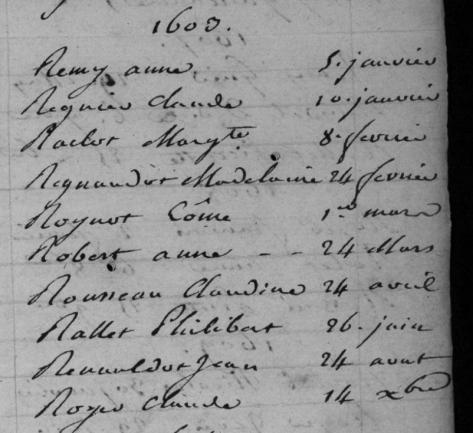 1603.
Remy anne 5. janvier
Regnier Claude 10. janvier
Raclot Margte. 8. fevrier
Regnaudot Madelaine 24 fevrier
Roynot Côme 1er mars
Robert anne - - 24 Mars
Rousseau Claudine 24 avril
Rallet Philibert 26. juin
Renauldot Jean 24 aout
Royer Claude 14 xbre